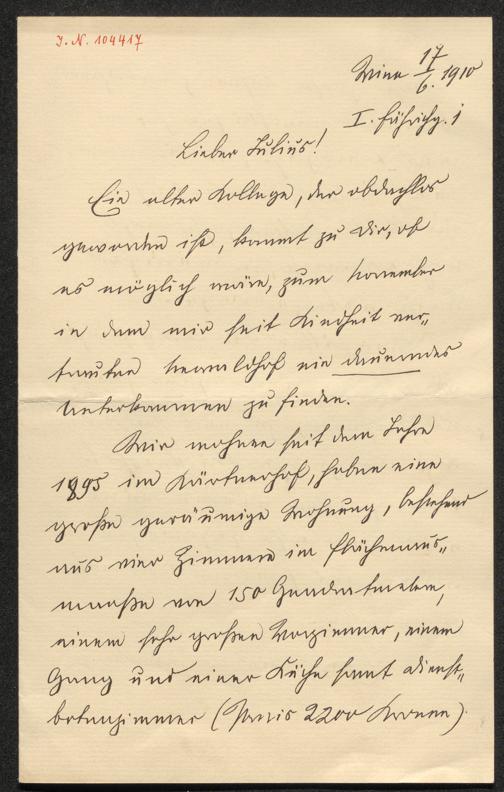 J.N. 104417
Wien 17/6. 1910
I. Führichg. 1
Lieber Julius!
Ein alter Kollege, der obdachlos
geworden ist, kommt zu Dir, ob
es möglich wäre, zum November
in dem mir seit Kindheit ver-
trauten ein dauerndes
Unterkommen zu finden.
Wir wohnen seit dem Jahre
1895 im Kärtnerhof, haben eine
große geräumige Wohnung, bestehend
aus vier Zimmern im Flächenaus-
maaße von 150 Quadratmetern,
einem sehr großen Vorzimmer, einem
Gang und einer Küche samt Dienst-
botenzimmer (Preis 2200 Kronen).